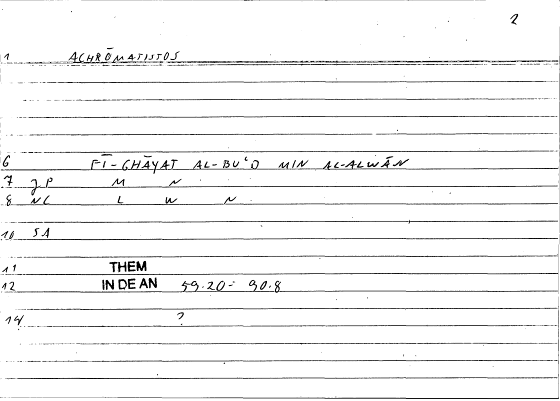 2
1 ACHRŌMATISTOS
6 FĪ-GHĀYAT AL-BUʿD MIN AL-ALWĀN
7 JP M N
8 NC L W N
10 SA
11 THEM
12 IN DE AN 59.20 : 90.8
14 ?